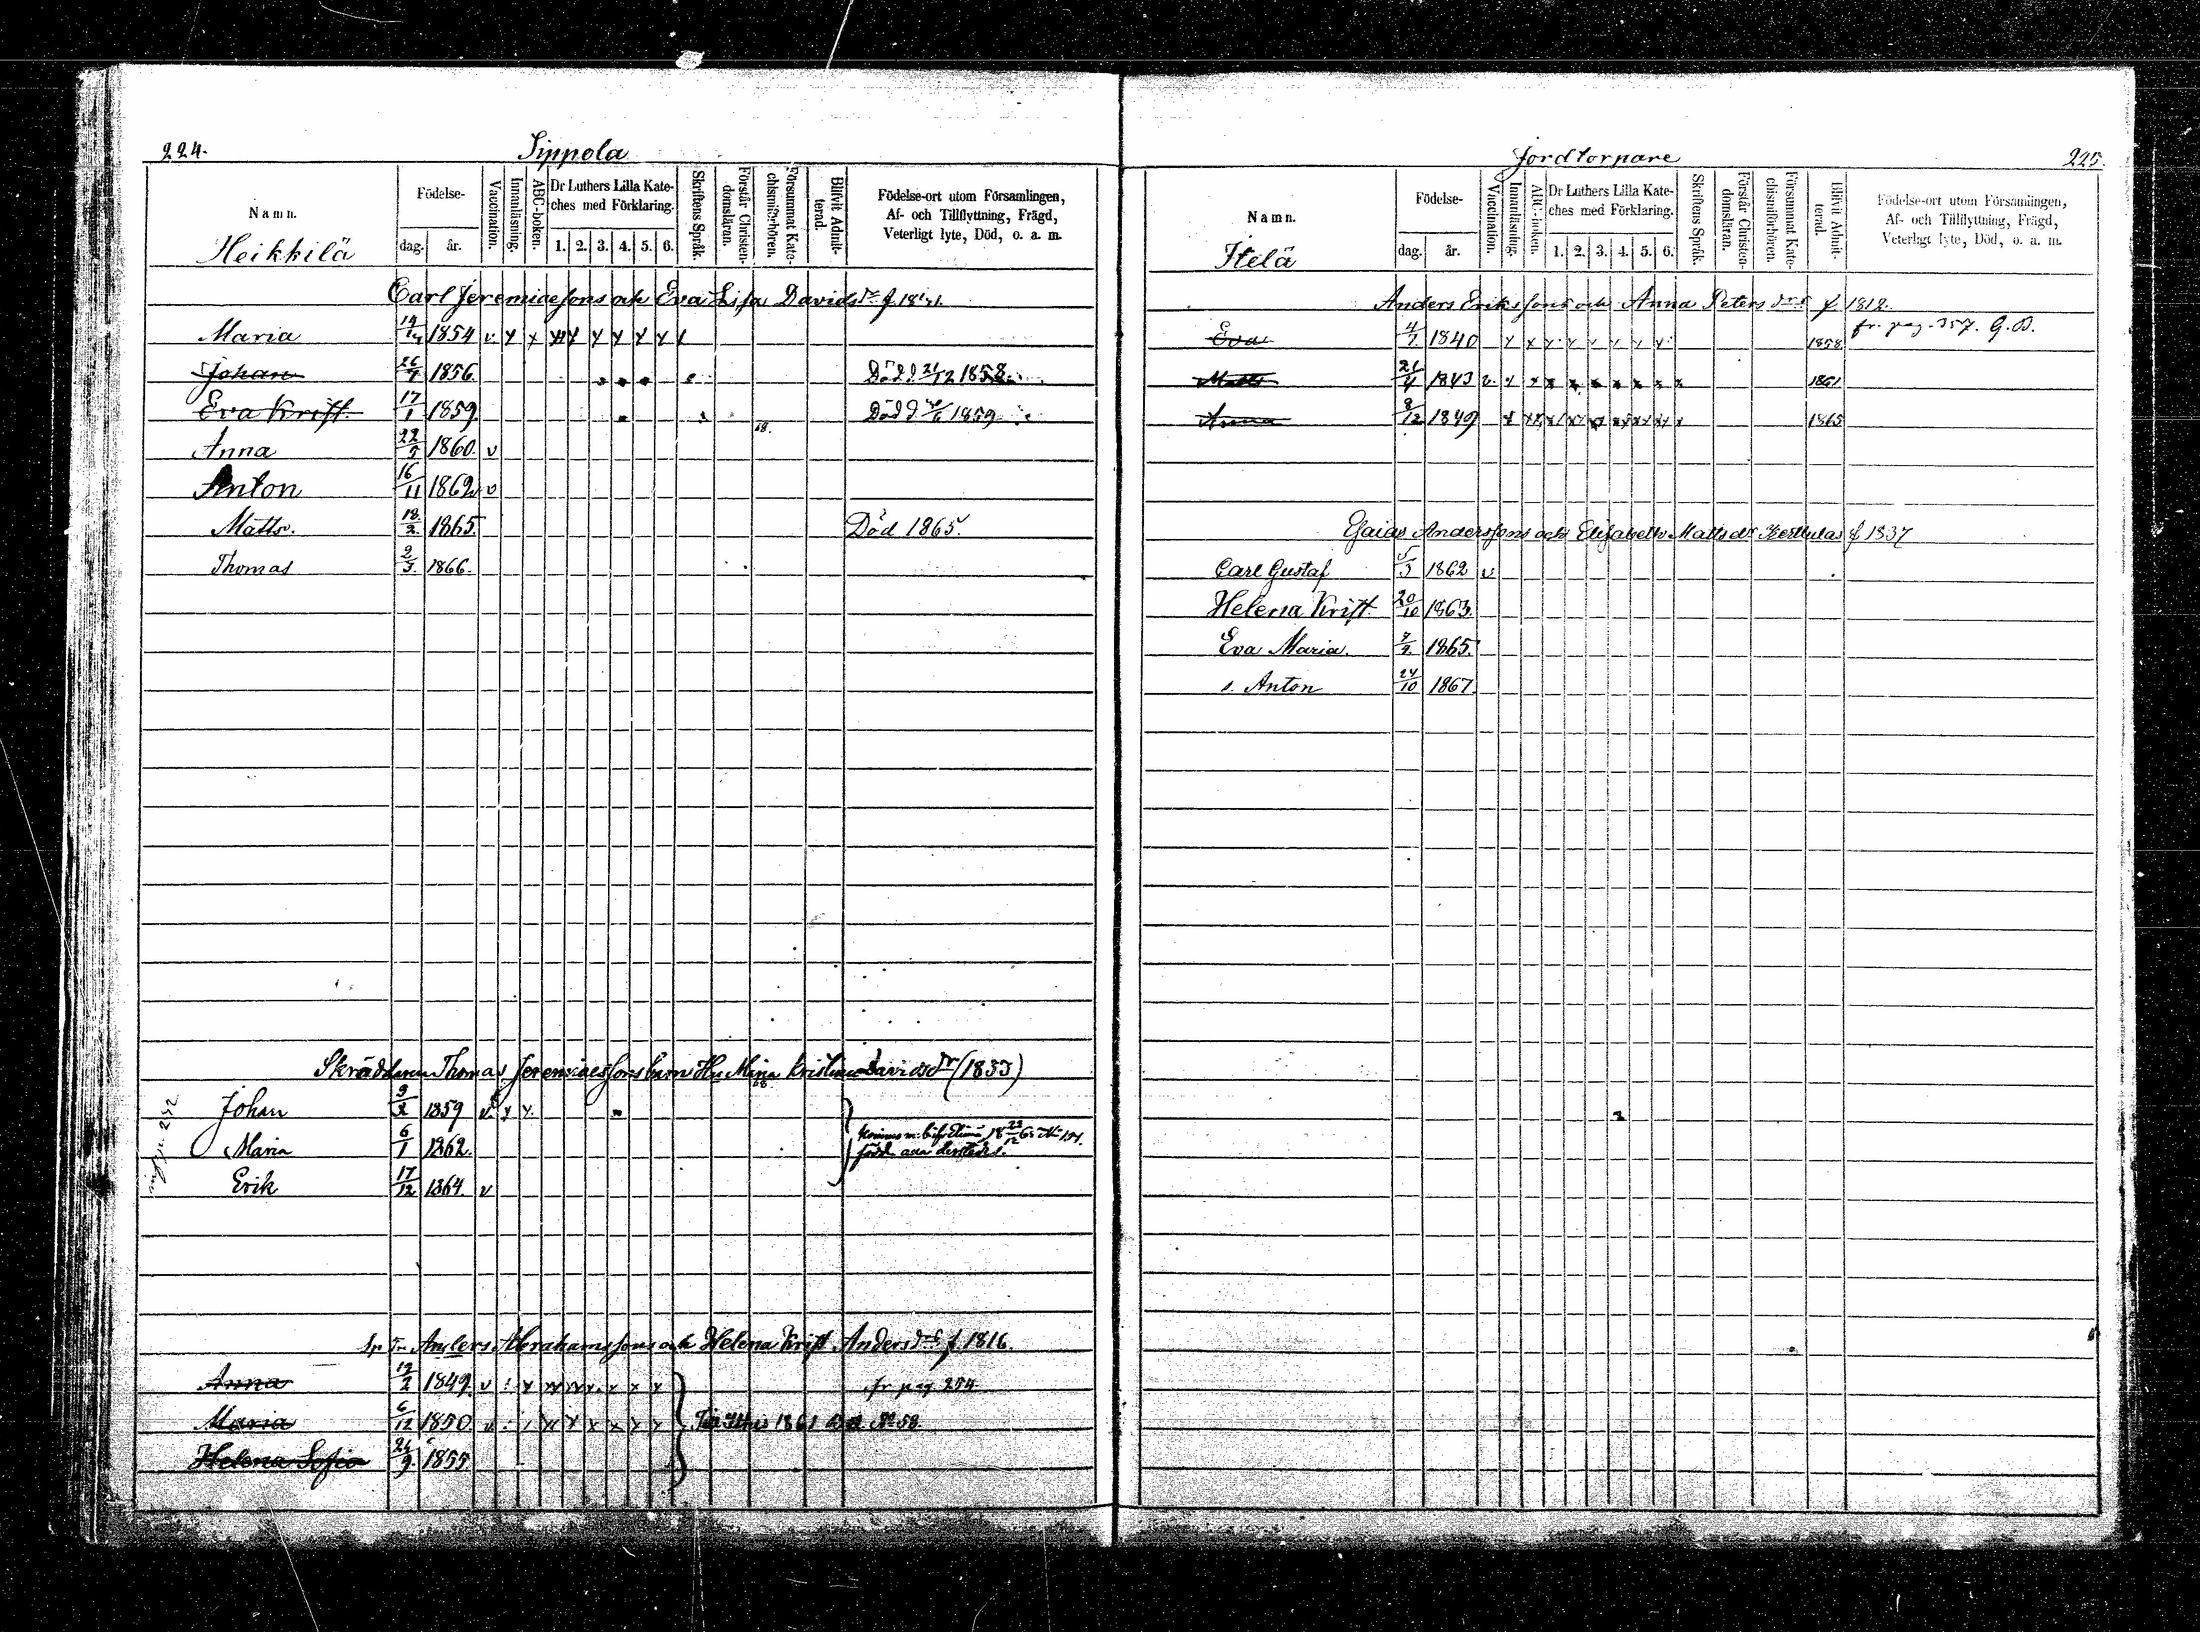 224.
Sippola
Namn.
Heikkilä
Födelse-
dag. år.
Vaccination.
Innanläsning.
ABC-boken.
Dr Luthers Lilla Kate-
ches med Förklaring.
1. 2. 3. 4. 5. 6.
Skriftens Språk.
Förstår Christen-
domsläran.
Försummat Kate-
chismiförhören.
Blifvit Admit-
terad.
Födelse-ort utom Församlingen,
Af- och Tillflyttning, Frägd,
Veterligt lyte, Död, o. a. m.
Carl Jeremiaesons och Eva Lisa Davidsdr f
Maria 1854 v
Johan 1856. Död 21/12 1858.
Eva Krist 17/1 1859 Död 1859
68.
Anna 22/5 1860. v
Anton 16/11 1862 v
Matts. 18/2 1865. Död 1865.
Thomas 2/3. 1866.
Skräddaren Thomas Jeremiaessons barn Hu Mina Kristina Davidsdr (1833)
68
Johan 3/2 1859 v
Maria 6/1 1862.
Erik 17/12 1864. v
Anders Abrahamssons och Helena Krist Andersdr f. 1816.
Anna 1849 v fr pag 254
Maria 6/12 1850. v 1861 No 58
Helena Sofia 1855
Jordtorpare
225.
Namn.
Itelä
Födelse-
dag. år.
Vaccination.
Innanläsning.
ABC-boken.
Dr Luthers Lilla Kate-
ches med Förklaring.
1. 2. 3. 4. 5. 6.
Skriftens Språk.
Förstår Christen-
domsläran.
Försummat Kate-
chismiförhören.
Blifvit Admit-
terad.
Födelse-ort utom Församlingen,
Af- och Tillflyttning, Frägd,
Veterligt lyte, Död, o. a. m.
Anders Erikssons och Anna Petersdr f 1812.
fr. pag. 357. G.B.
Eva 4/7 1840 1858
Matts 21/4 1843 v. 1861
Anna 8/12 1849 1865
Esaias Anderssons och Elisabeth Mattsdr f 1837
Carl Gustaf 5/3 1862 v
Helena Krist. 20/10 1863.
Eva Maria. 1865.
s. Anton 24/10 1867.